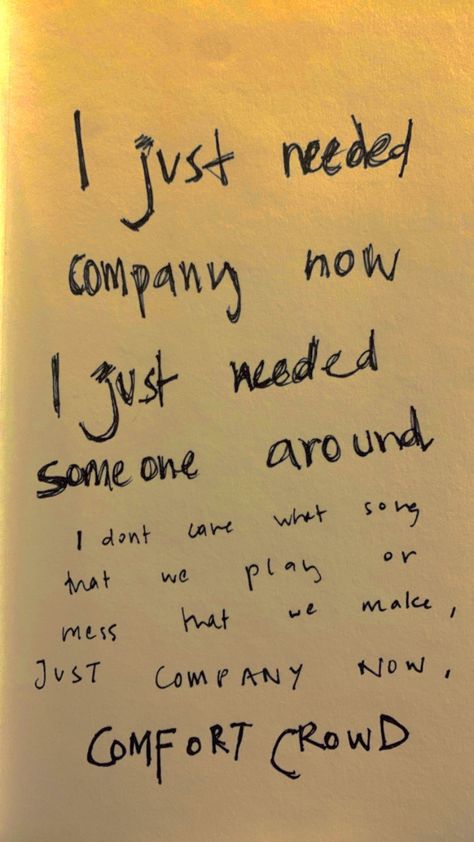 I just needed
company now
I just needed
someone around
I dont care what song
that we play or
mess that we make,
JUST COMPANY NOW,
COMFORT CROWD